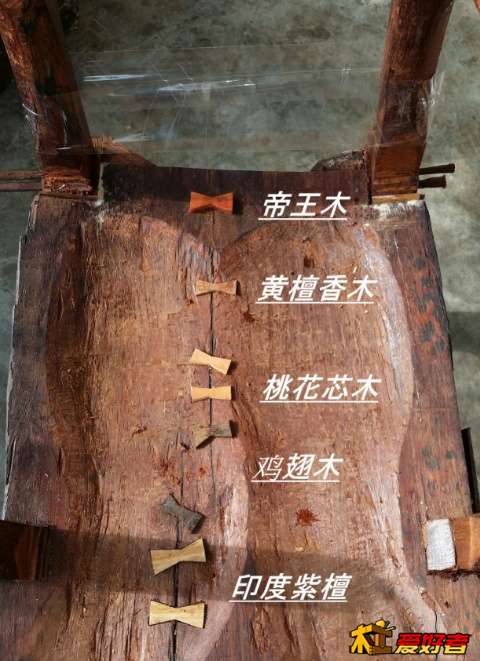 帝王木
黄檀香木
桃花芯木
鸡翅木
印度紫檀
木工爱好者